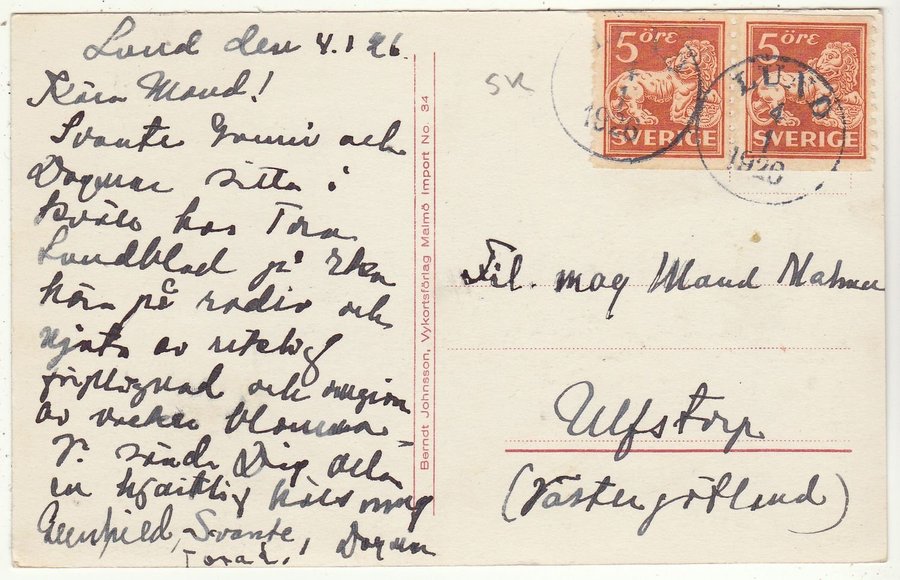 Lund den 4.1 26
Kära Maud!
Svante och
Dagmar sitta i
kväll hos Tora
Lundblad på
höra på radio och
njuta av
och
av vacker blommor
Vi sända Dig alla
en hjärtlig
Svante
Tora L. Dagmar
Berndt Johnsson, Vykortsförlag Malmö Import No. 34
SK
5 ÖRE
SVERIGE
5 ÖRE
SVERIGE
LUND
4
1
1926
LUND
4
1
1926
Fil. mag Maud
Ulfstorp
(Västergötland)